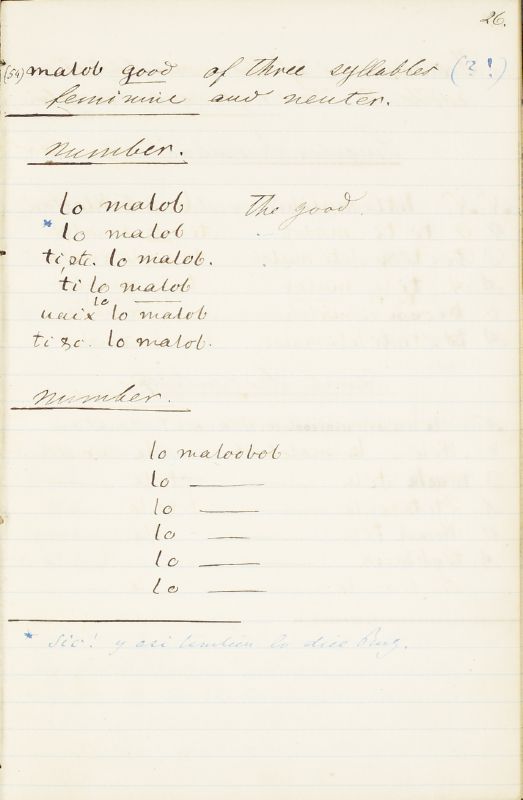 26.
(54) malob good of three syllables (?!)
feminine and neuter.
Number.
lo malob The good.
* lo malob
ti, ste. lo malob.
ti lo malob
uaix lo lo malob
ti zo. lo malob.
Number.
lo maloobob
lo ———
lo ———
lo ———
lo ———
lo ———
* Sic! y asi tambien lo dice